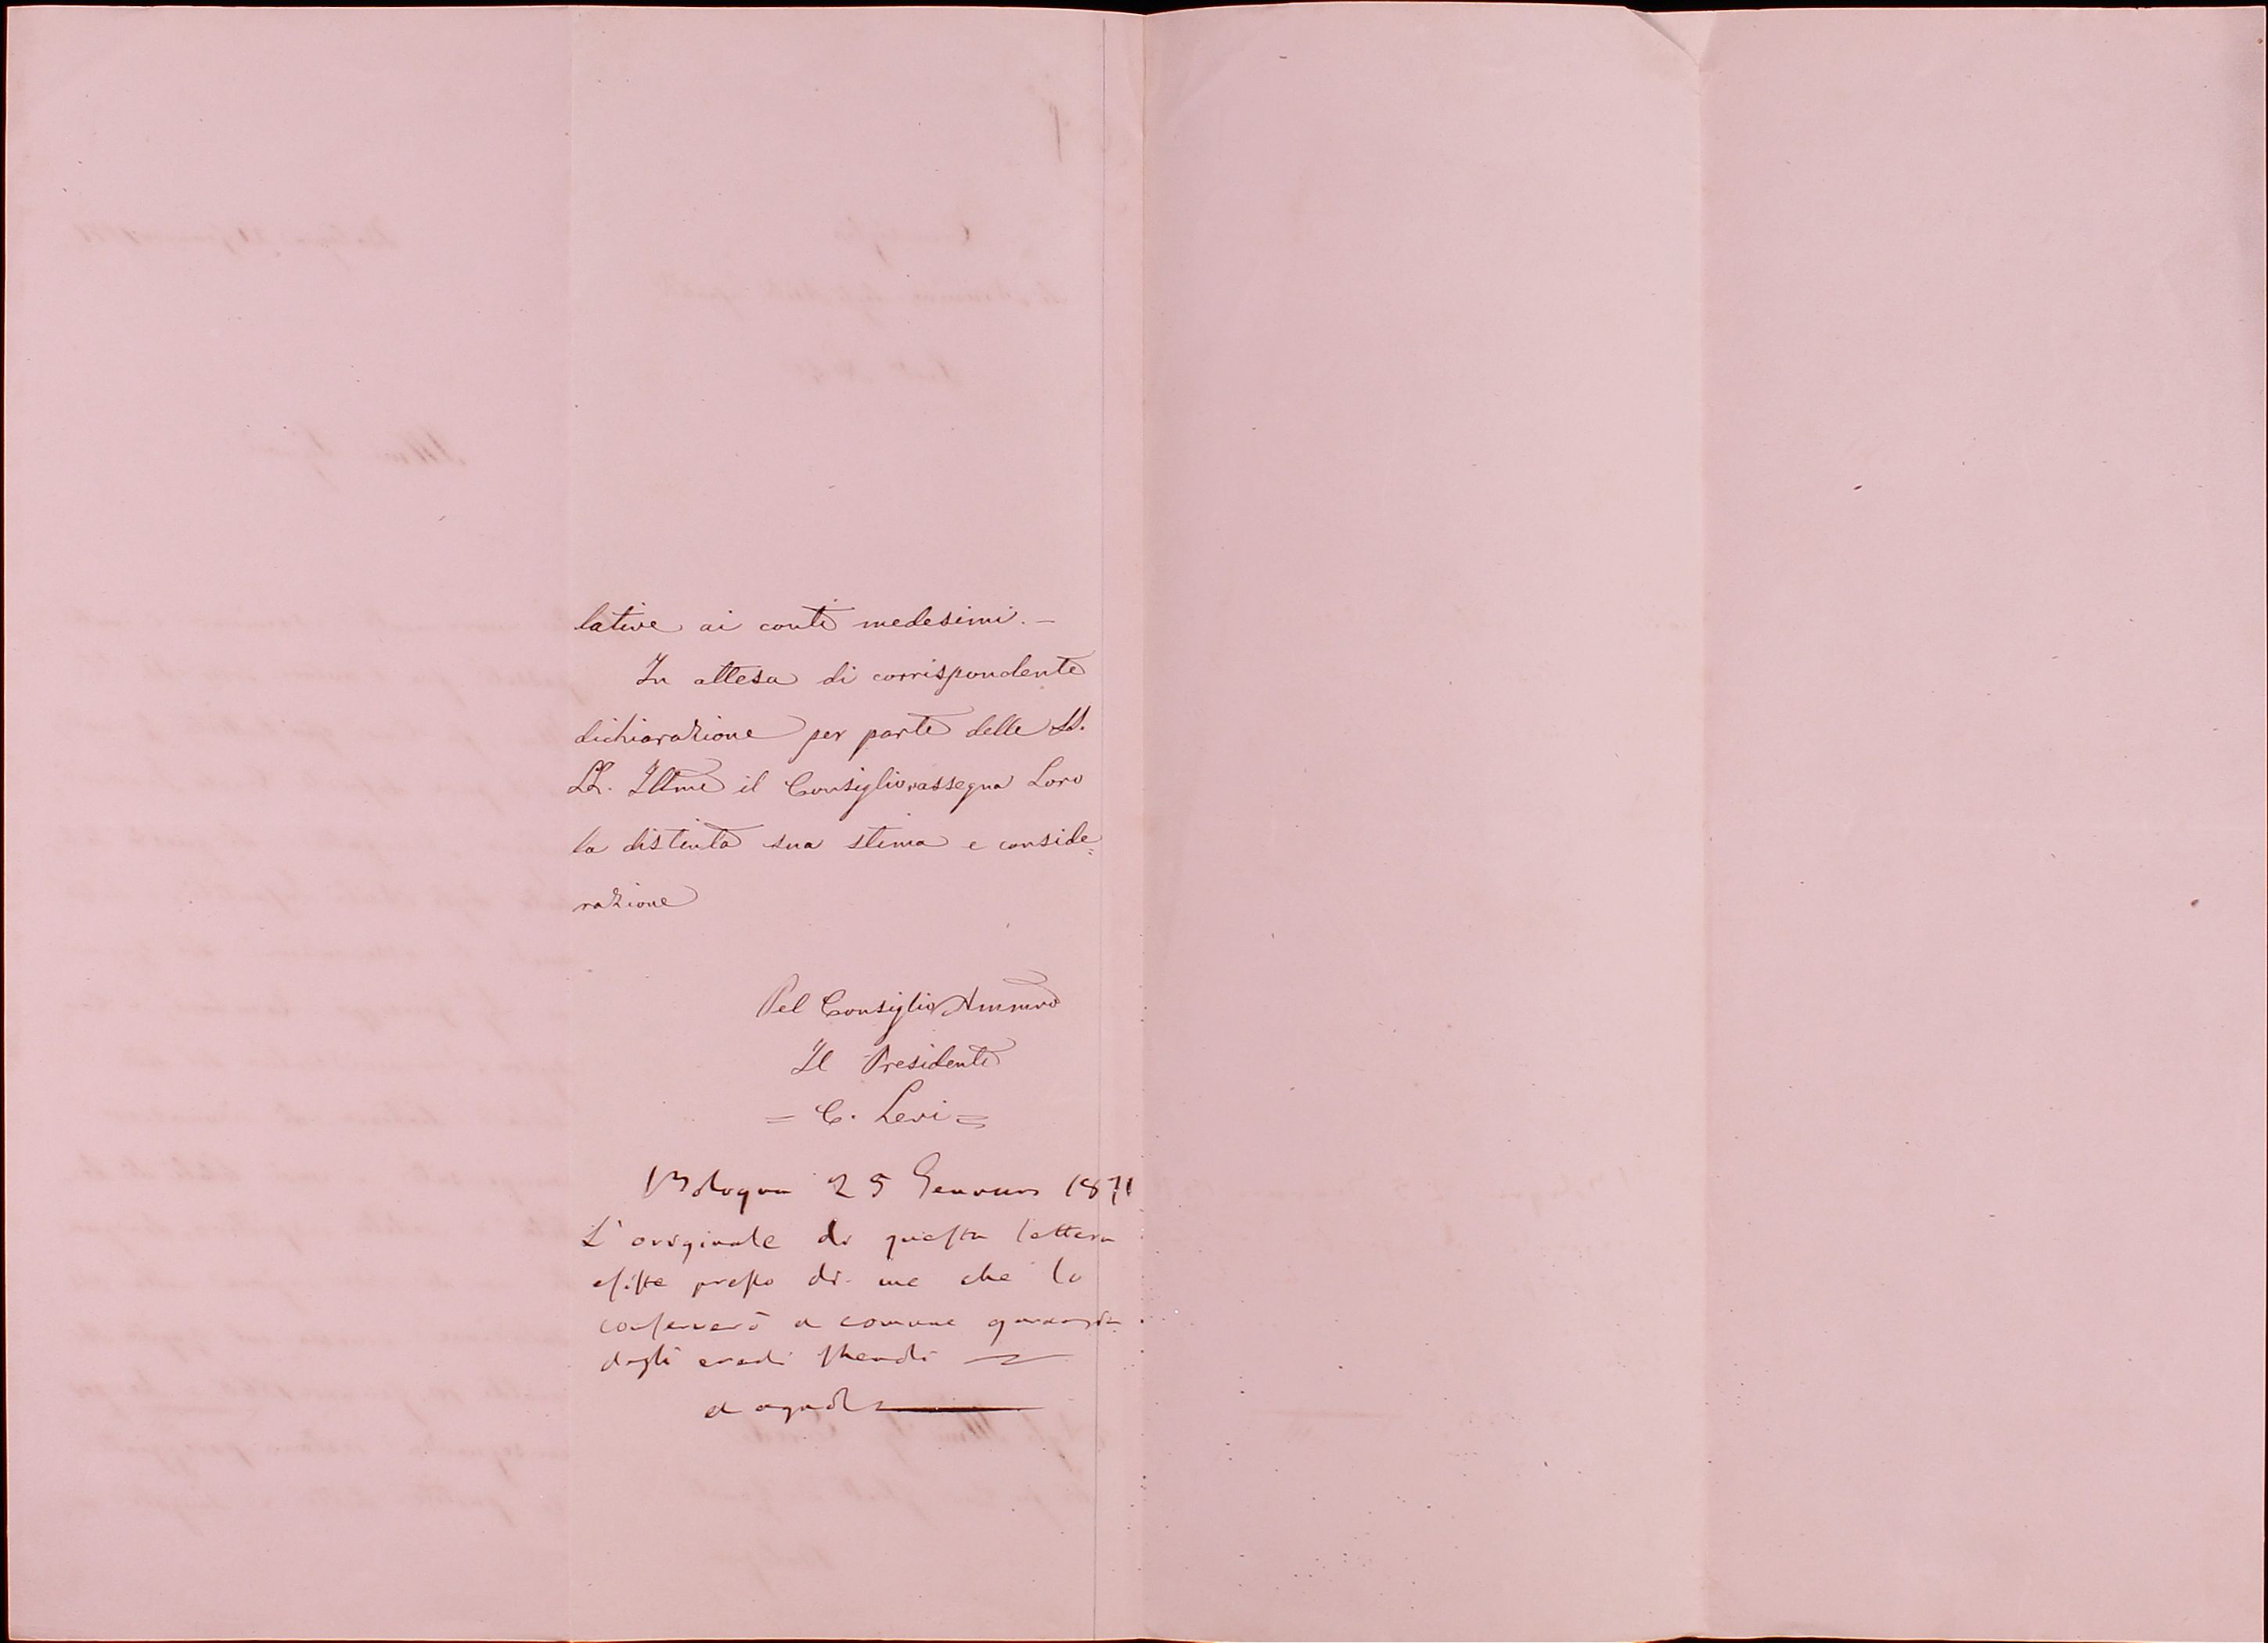 lative ai conti medesimi. –
In attesa di corrispondente
dichiarazione per parte delle SS.
LL. Illme il Consiglio rassegna Loro
la distinta sua stima e conside=
razione
Pel Consiglio Ammvo
Il Presidente
= C. Levi =
Bologna 25 Gennaro 1871
L'originale di questa lettera
esiste presso di me che lo
conserverò a comune garanzia
dagli eredi